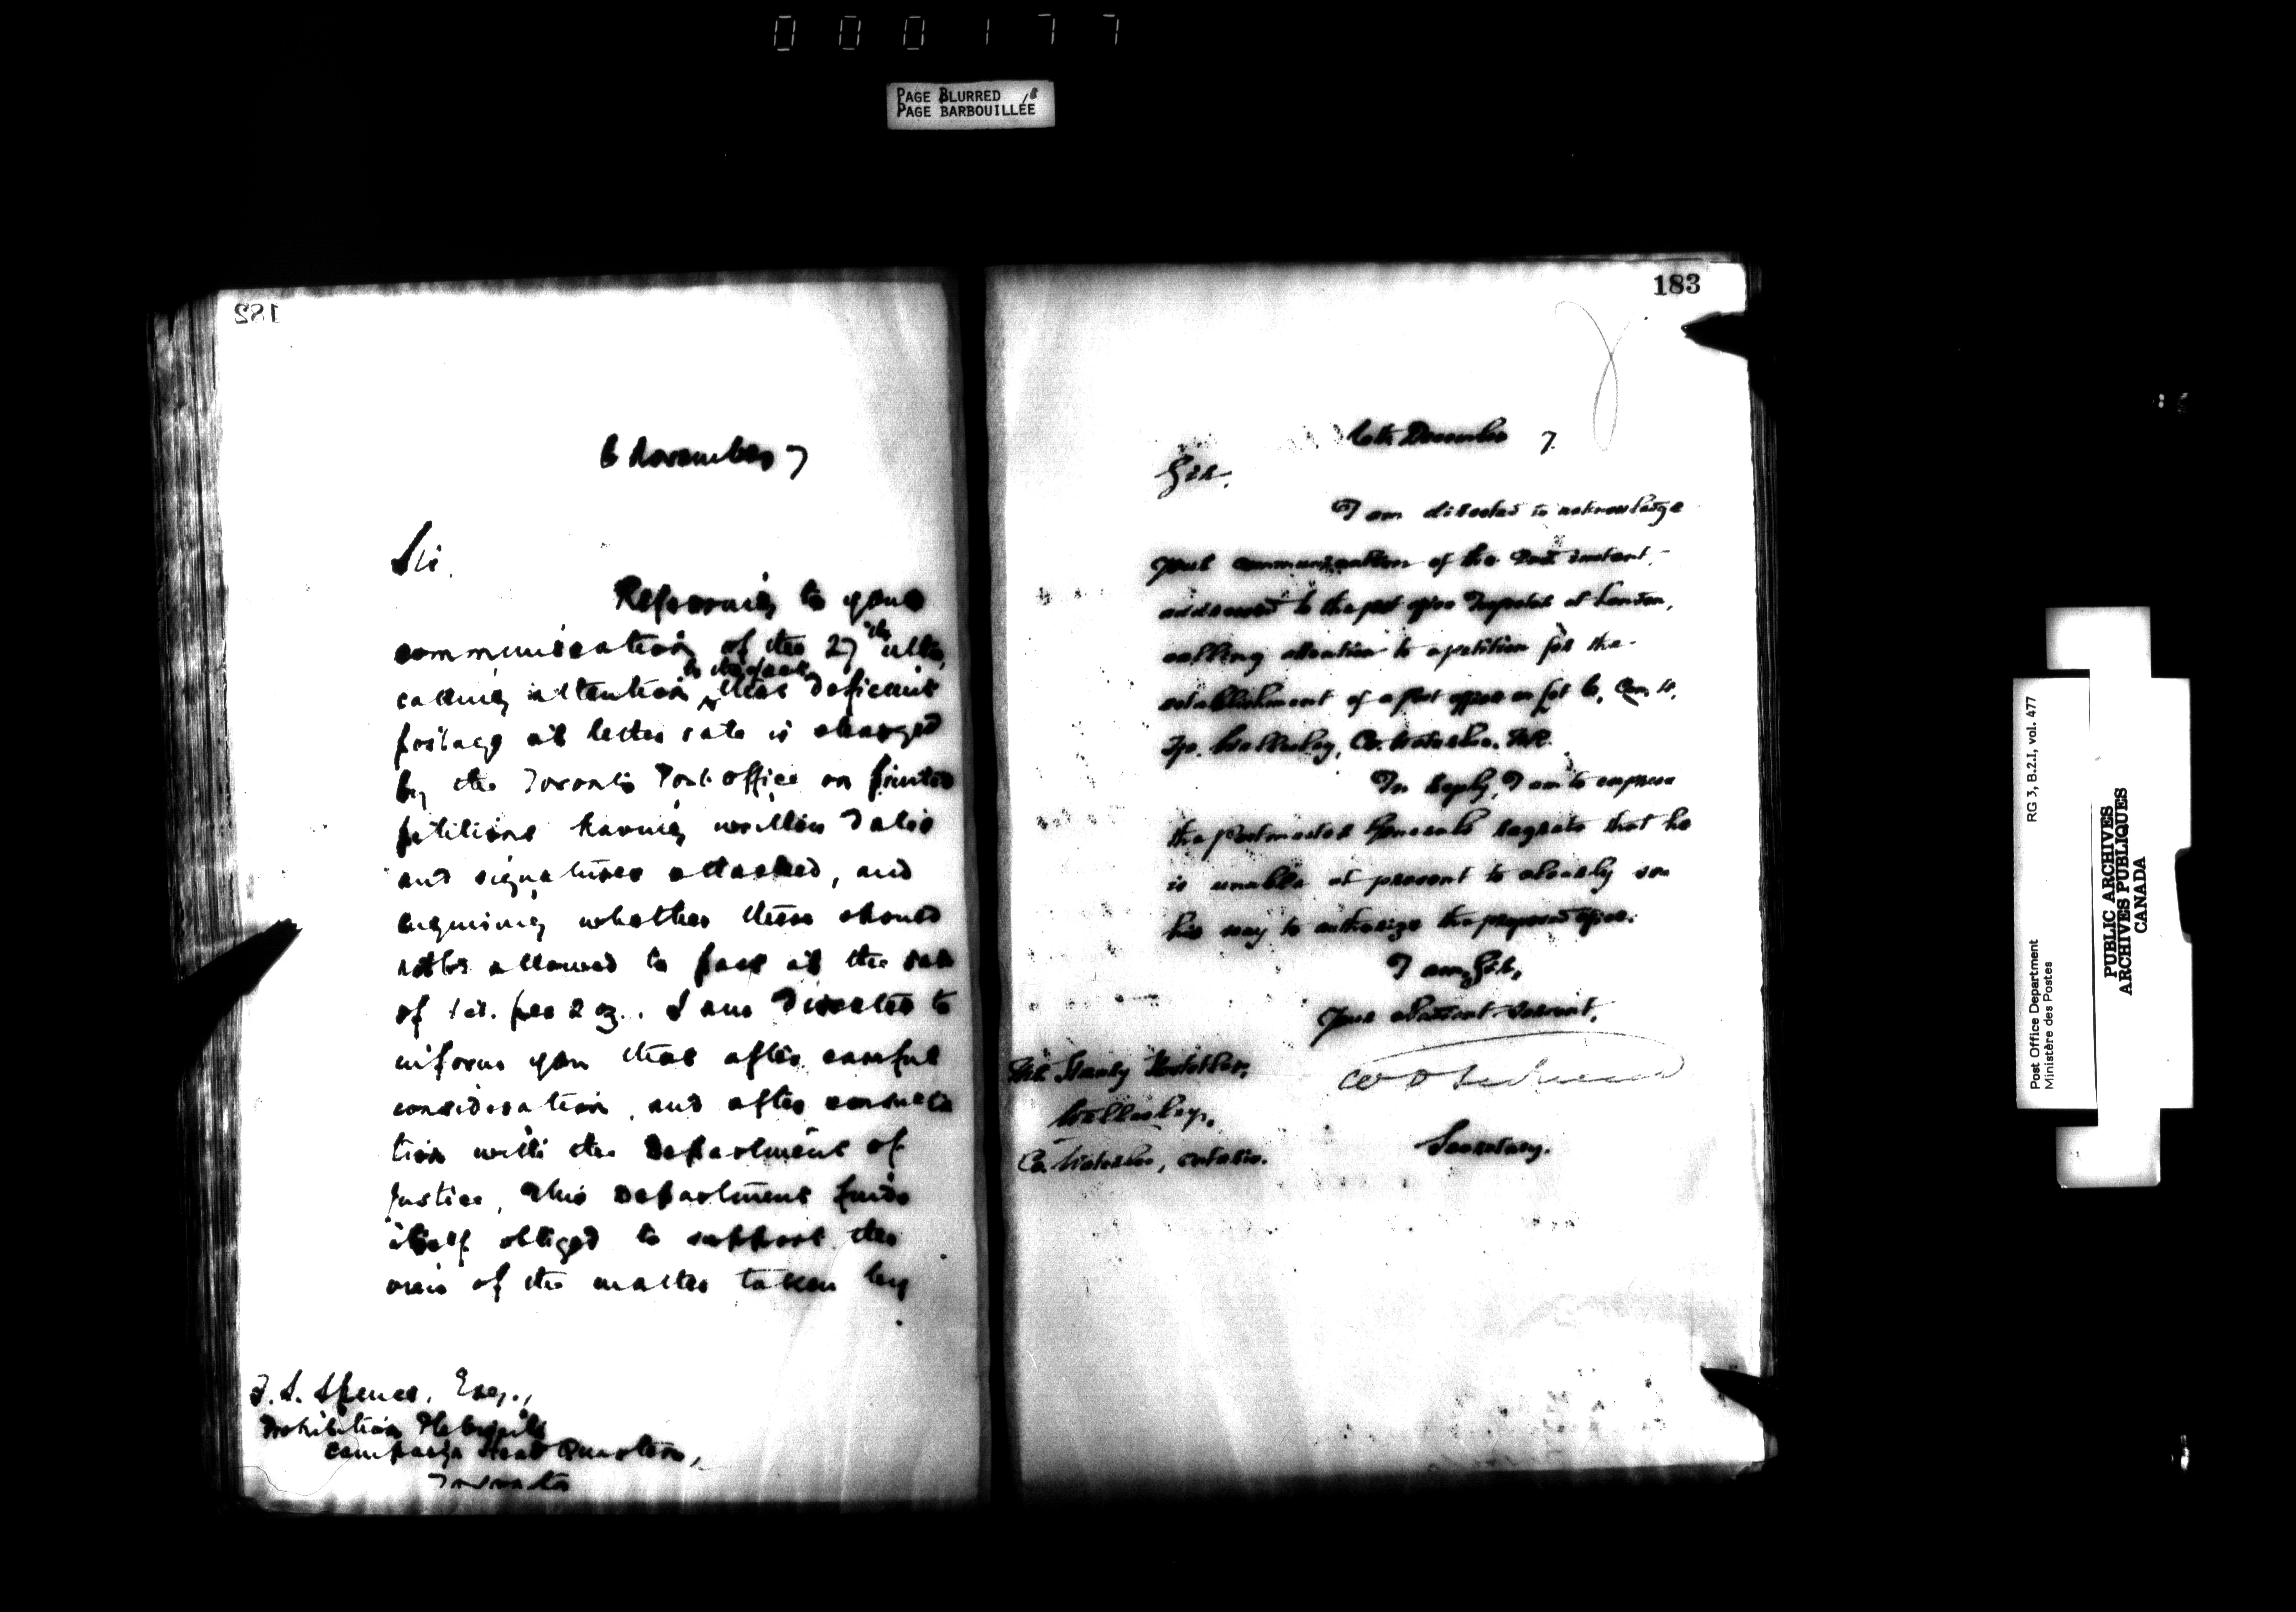 000177
PAGE BLURRED
PAGE BARBOUILLÉE
182
6 November 7
Sir.
Referring to your
communication of the 27th ulto,
calling attention to the fact that deficient
postage at letter rate is charged
by the Toronto Post office on printed
petitions having written dates
and signatures attached, and
enquiring whether these should
not be allowed to pass at the rate
of 1ct. per 2 oz.. I am directed to
inform you that after careful
consideration, and after consulta
tion with the Department of
Justice, this Department finds
itself obliged to support the
view of the matter taken by
F. S. Spence, Esq.,
Prohibition Plebiscite
Campaign Head Quarters,
Toronto
183
December 7.
Sir.
I am directed to acknowledge
your communication of the instant,
addressed to the post office Inspector at London,
calling attention to a petition for the
establishment of a post office on Lot 6, Con.
Tp. Wellesley, Co. Waterloo, N.R.
In reply, I am to express
the Postmaster General's regrets that he
is unable at present to clearly see
his way to authorize the proposed office.
I am, Sir,
Your obedient Servant,
Secretary.
Mr.
Wellesley,
Co. Waterloo, Ontario.
Post Office Department RG 3, B.2.I, vol. 477
Ministère des Postes
PUBLIC ARCHIVES
ARCHIVES PUBLIQUES
CANADA